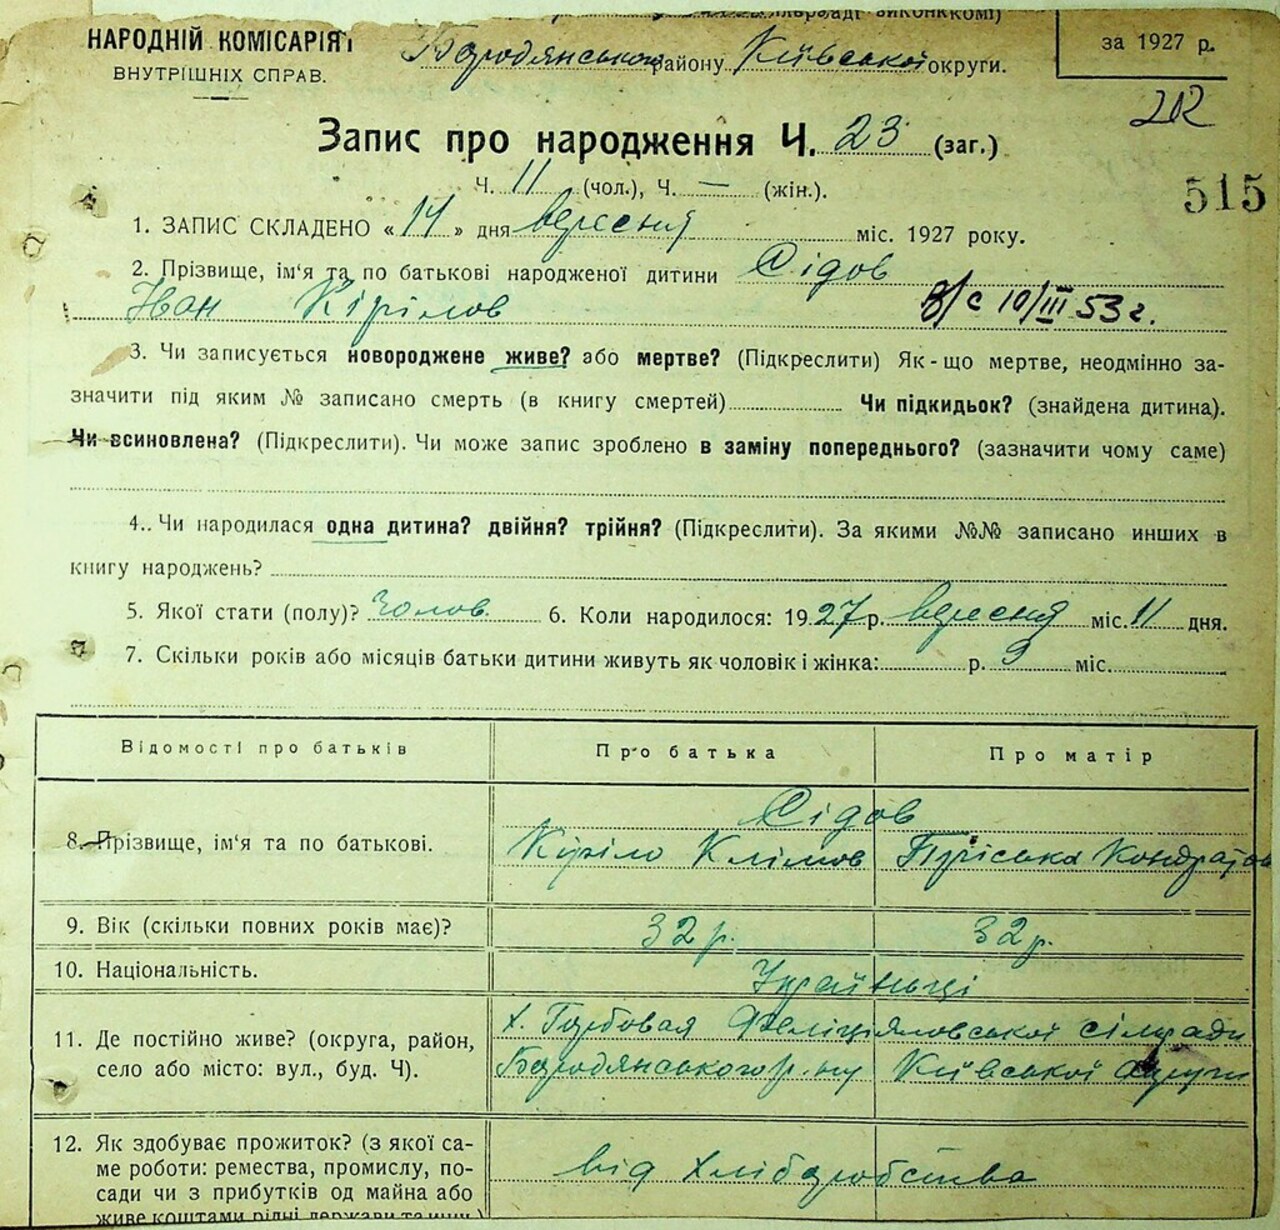 НАРОДНІЙ КОМІСАРІЯТ
ВНУТРІШНІХ СПРАВ.
Бородянського району Київської округи.
за 1927 р.
212
Запис про народження Ч. 23 (заг.)
Ч. 11 (чол.), Ч. — (жін.).
515
1. ЗАПИС СКЛАДЕНО «14» дня вересня міс. 1927 року.
2. Прізвище, ім'я та по батькові народженої дитини Сідов
Іван Кірілов в/с 10/III 53 г.
3. Чи записується новороджене живе? або мертве? (Підкреслити) Як-що мертве, неодмінно за-
значити під яким № записано смерть (в книгу смертей) Чи підкидьок? (знайдена дитина).
Чи всиновлена? (Підкреслити). Чи може запис зроблено в заміну попереднього? (зазначити чому саме)
4.. Чи народилася одна дитина? двійня? трійня? (Підкреслити). За якими №№ записано инших в
книгу народжень?
5. Якої стати (полу)? Чолов. 6. Коли народилося: 1927 р. вересня міс. 11 дня.
7. Скільки років або місяців батьки дитини живуть як чоловік і жінка: р. 9 міс.
Відомості про батьків Про батька Про матір
Сідов
8. Прізвище, ім'я та по батькові. Кіріло Клімов Пріська Кондратов
9. Вік (скільки повних років має)? 32 р. 32 р.
10. Національність. Українці
х. Гарбовая сільради
11. Де постійно живе? (округа, район,
село або місто: вул., буд. Ч). Бородянського р.ну Київської округи
12. Як здобуває прожиток? (з якої са-
ме роботи: ремества, промислу, по- від хліборобства
сади чи з прибутків од майна або
живе коштами рідні держави та инш.)